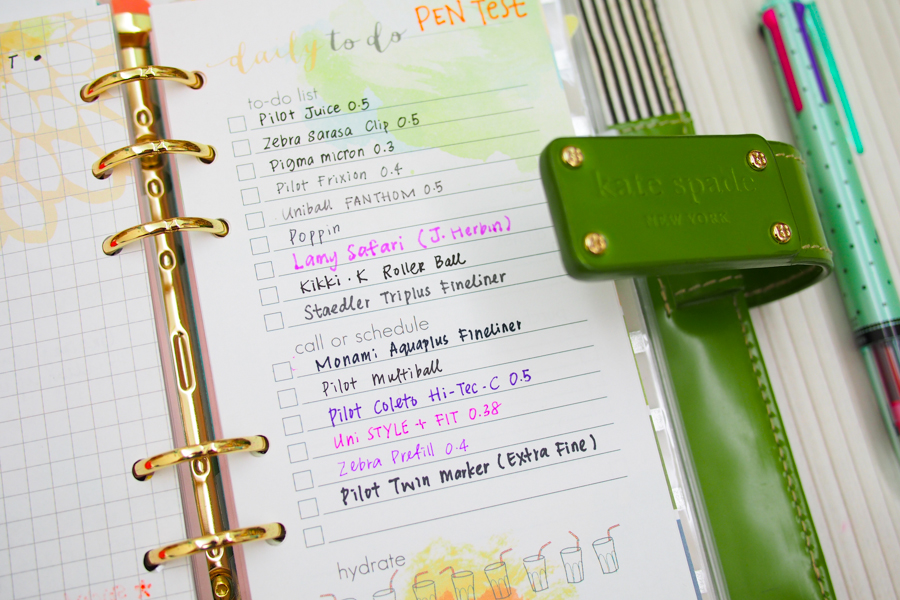 T •
PEN TEST
daily to do
to-do list
Pilot Juice 0.5
Zebra Sarasa Clip 0.5
Pigma micron 0.3
Pilot Frixion 0.4
Uniball FANTHOM 0.5
Poppin
Lamy Safari (J. Herbin)
Kikki.K Roller Ball
Staedler Triplus Fineliner
call or schedule
Monami Aquaplus Fineliner
Pilot Multiball
Pilot Coleto Hi-Tec-C 0.5
Uni STYLE + FIT 0.38
Zebra Prefill 0.4
Pilot Twin Marker (Extra Fine)
hydrate
kate spade
NEW YORK